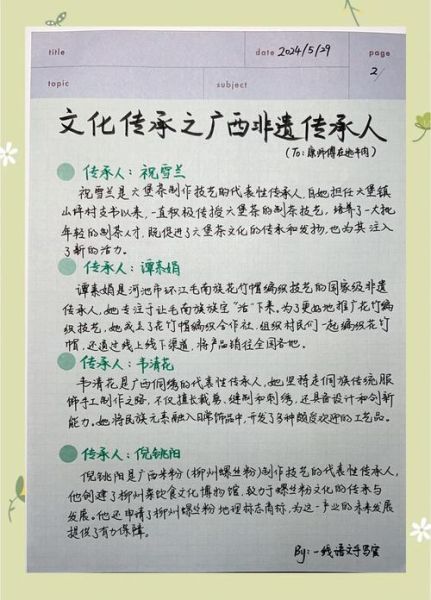 title
date 2024/5/29
page
2/
topic
subject
文化传承之广西非遗传承人
(To：康师傅在地牛肉)
传承人：祝雪兰
祝雪兰是六堡茶制作技艺的代表性传承人，自她担任六堡镇
山坪村支书以来，一直积极传授六堡茶的制茶技艺，培养了一大批
年轻的制茶人才，既促进了六堡茶文化的传承和发扬，也为其注入
了新的活力。
传承人：谭素娟
谭素娟是河池市环江毛南族花竹帽编织技艺的国家级非遗
传承人，她专注于让毛南族族宝“活”下来。为了更好地推广花竹编
织技艺，她成立了花竹帽编织合作社，组织村民们一起编织花竹
帽，还通过线上线下渠道，将产品销往全国各地。
传承人：韦清花
韦清花是广西侗绣的代表性传承人，她坚持走侗族传统服
饰手工制作之路，不仅擅长裁剪、缝制和刺绣，还具备设计和创新
能力。她将民族元素融入服饰品中，开发了多种颇受欢迎的工艺品。
传承人：倪铫阳
倪铫阳是广西米粉(柳州螺丝粉)制作技艺的代表性传承人，
他创建了柳州菜饮食文化博物馆，致力于螺丝粉文化的传承与
发展。他还申请了柳州螺丝粉地理标志商标，为这一产业的未来发展
提供了有力保障。
By：一线语文手写官